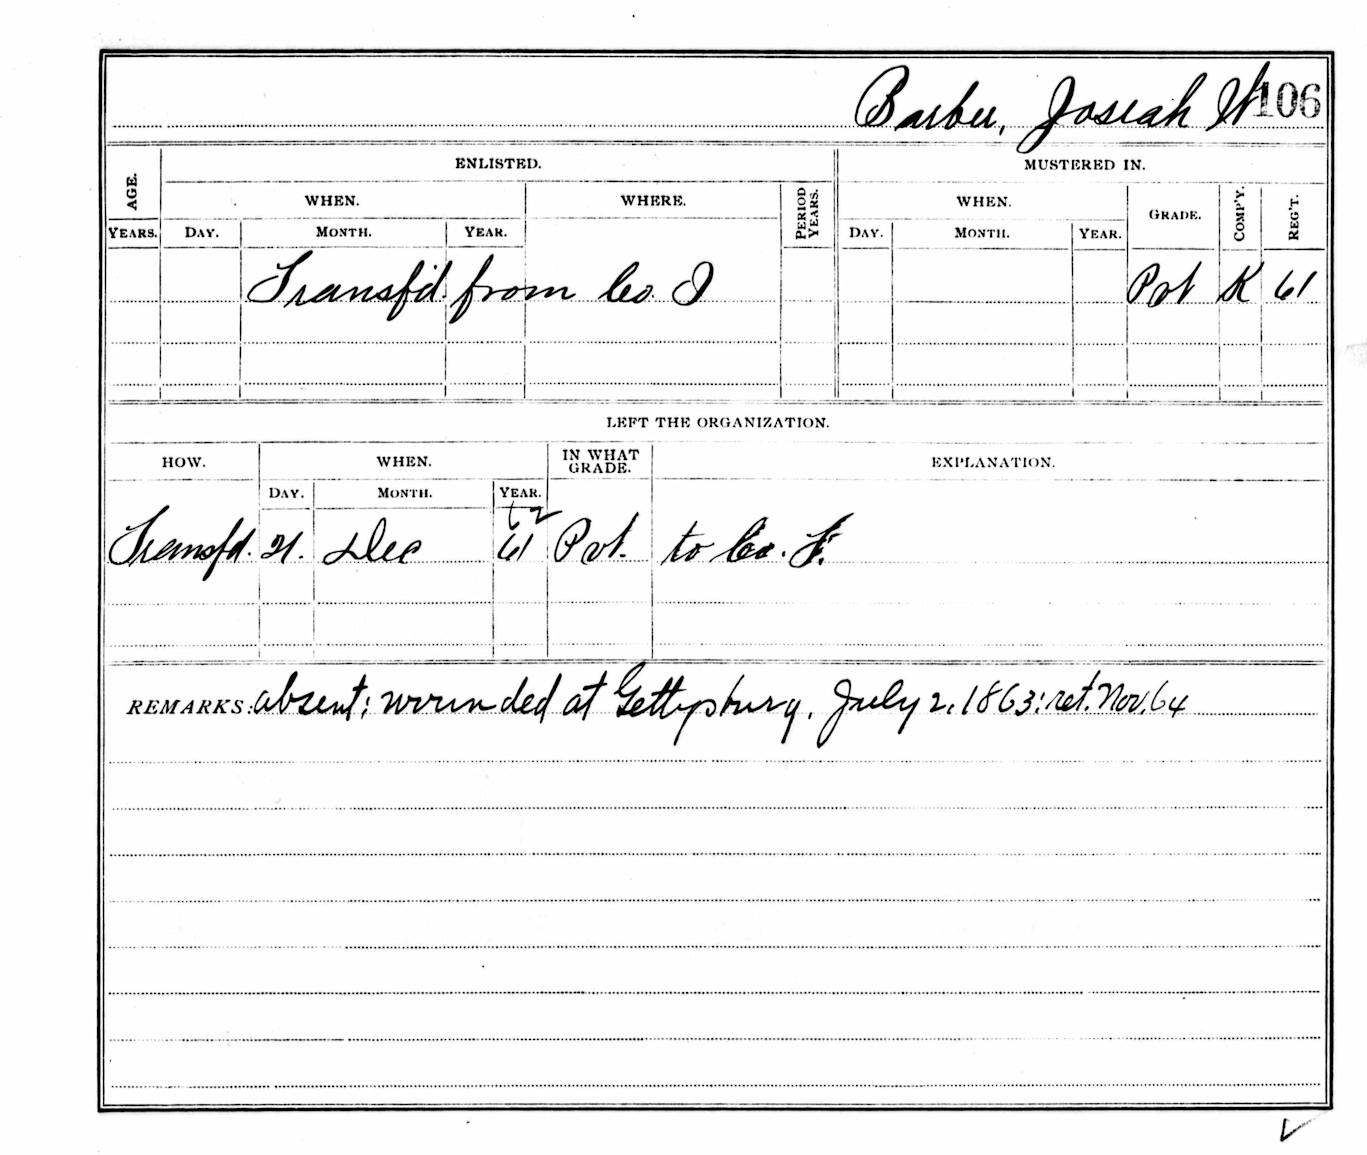 Barber, Josiah W 106
ENLISTED. MUSTERED IN.
AGE. WHEN. WHERE. PERIOD YEARS. WHEN. GRADE. COMP'Y. REG'T.
YEARS. DAY. MONTH. YEAR. DAY. MONTH. YEAR.
Transf'd. from Co. I Pvt K 61
LEFT THE ORGANIZATION.
HOW. WHEN. IN WHAT GRADE. EXPLANATION.
DAY. MONTH. YEAR.
62
Transfd. 21. Dec 61 Pvt. to Co. F.
REMARKS: absent; wounded at Gettysburg, July 2, 1863; ret. Nov. 64